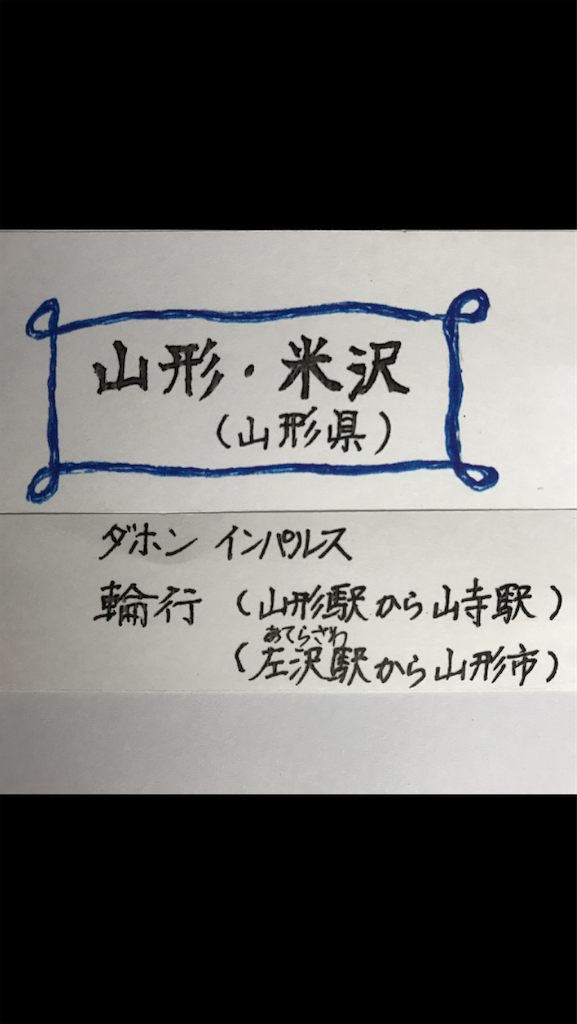 山形・米沢
(山形県)
ダホン インパルス
輪行 (山形駅から山寺駅)
あてらざわ
(左沢駅から山形市)